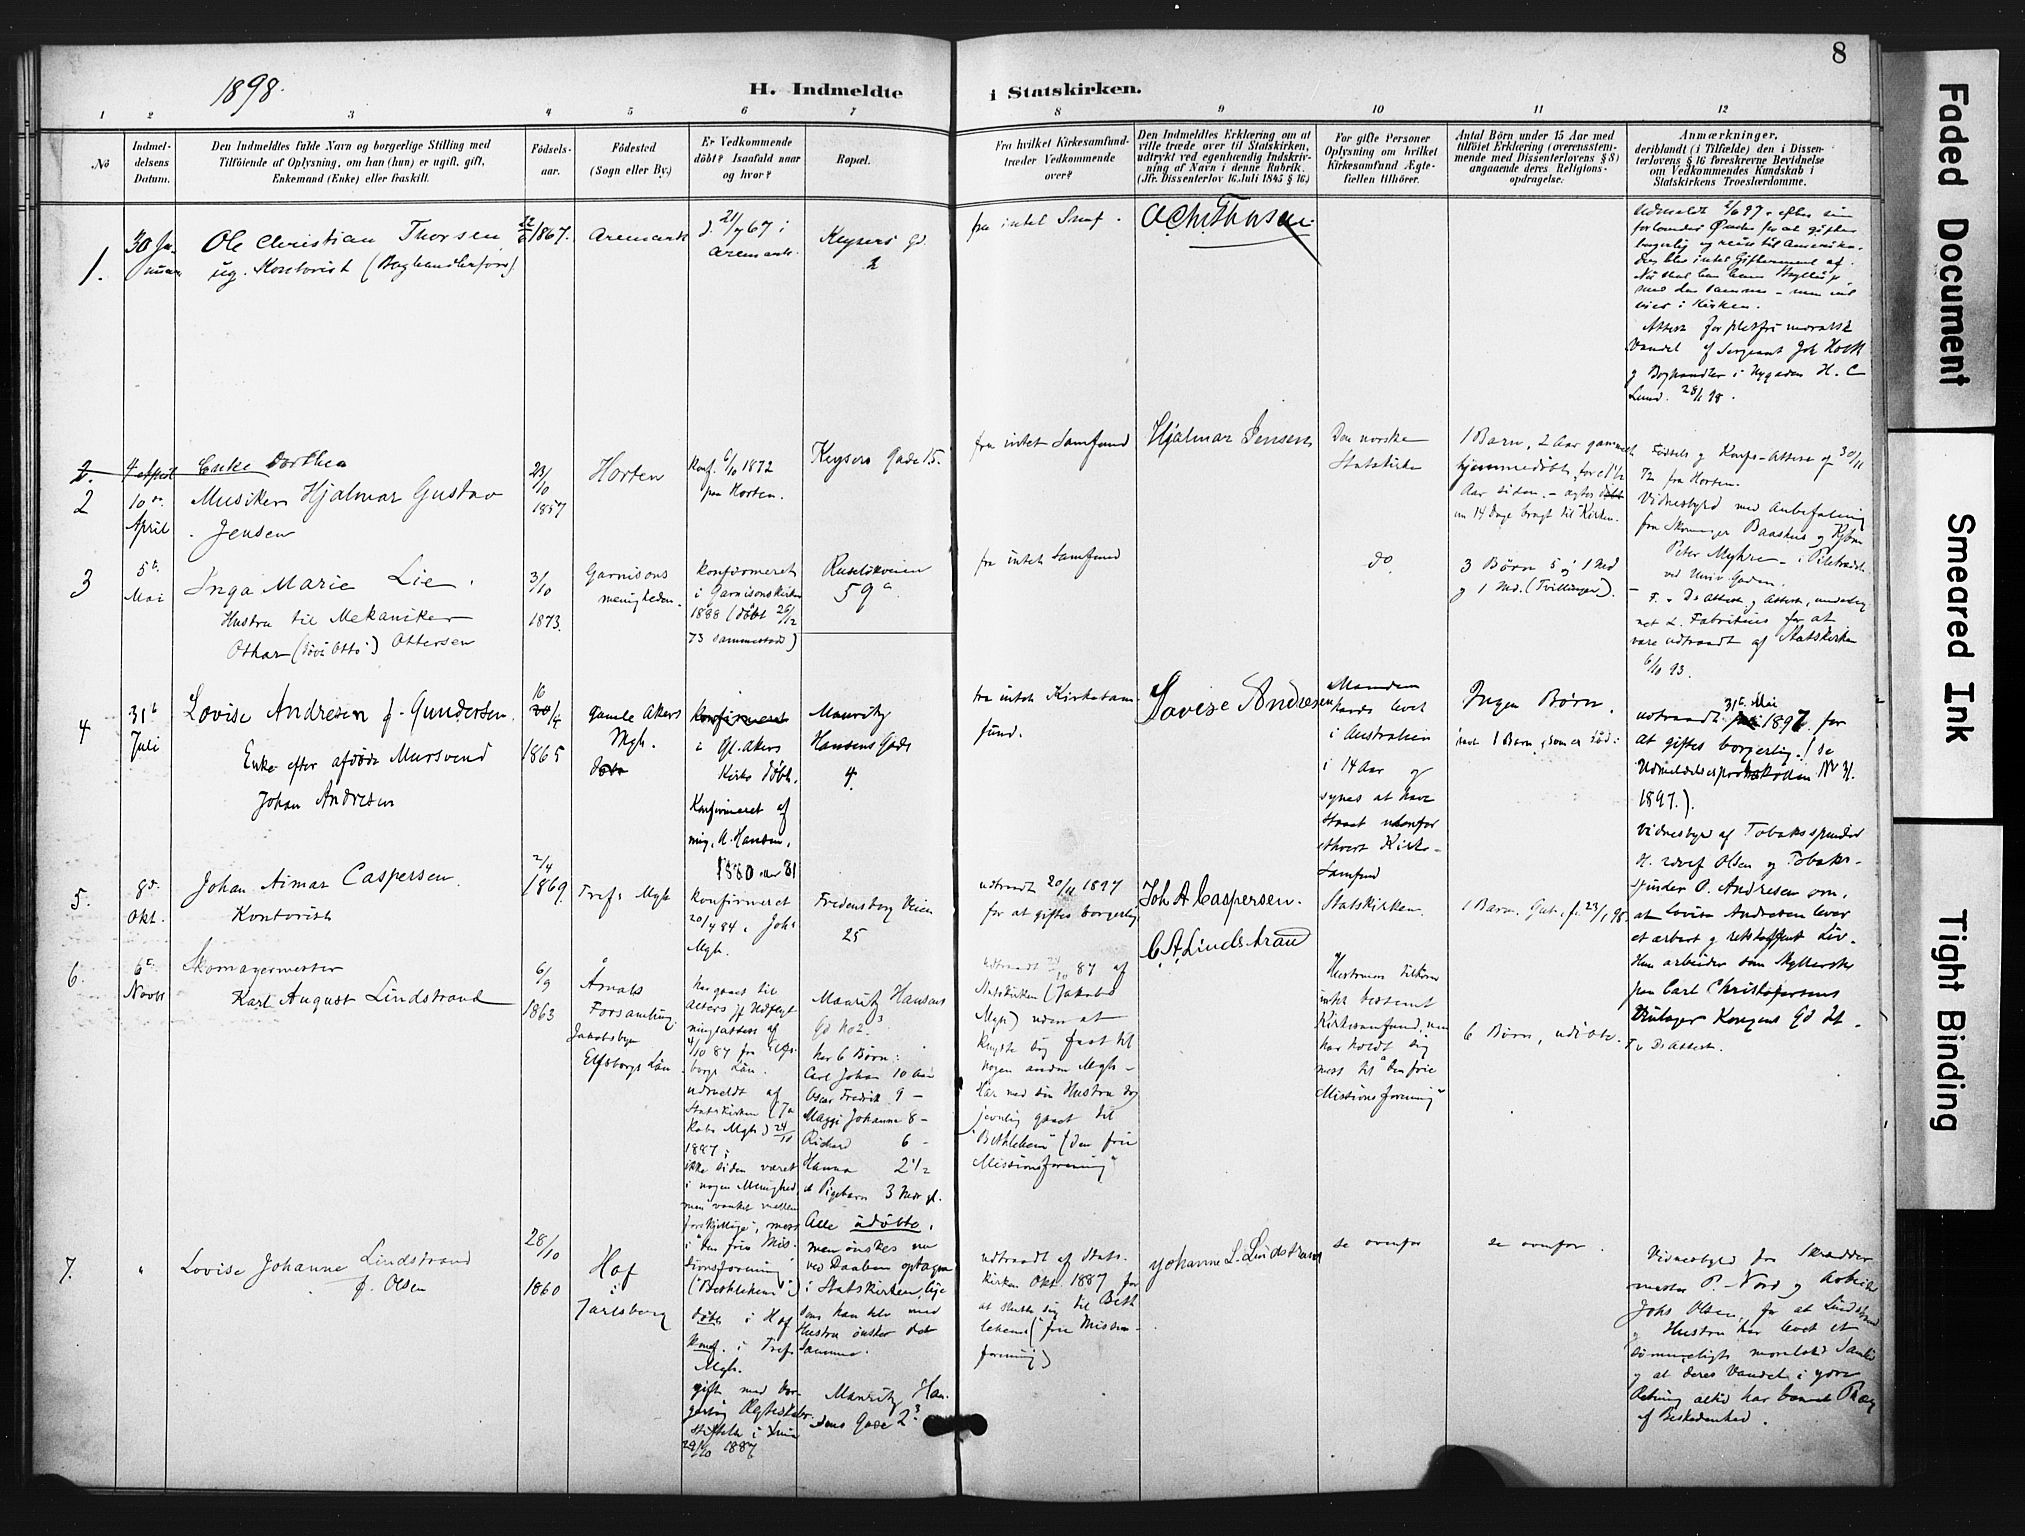 8
1898.
H. Indmeldte i Statskirken.
1 2 3 4 5 6 7 8 9 10 11 12
No
Indmel-
delsens
Datum.
Den Indmeldtes fulde Navn og borgerlige Stilling med
Tilföiende af Oplysning, om han (hun) er ugift, gift,
Enkemand (Enke) eller fraskilt.
Födsels-
aar.
Födested
(Sogn eller By.)
Er Vedkommende
döbt? Isaafald naar
og hvor?
Bopæl.
Fra hvilket Kirkesamfund
træder Vedkommende
over?
Den Indmeldtes Erklæring om at
ville træde over til Statskirken,
udtrykt ved egenhændig Indskriv-
ning af Navn i denne Rubrik.
(Jfr. Dissenterlov 16 Juli 1845 § 16.)
For gifte Personer
Oplysning om hvilket
Kirkesamfund Ægte-
fællen tilhörer.
Antal Börn under 15 Aar med
tilföiet Erklæring (overensstem-
mende med Dissenterlovens § 8)
angaaende deres Religions-
opdragelse.
Anmærkninger,
deriblandt (i Tilfælde) den i Dissen-
terlovens § 16 foreskrevne Bevidnelse
om Vedkommendes Kundskab i
Statskirkens Troeslærdomme.
1.
30 Ja-
nuar
Ole Christian Thorsen
ug. Kontorist
1867.
Aremark
21/7 67 i
Aremark.
Keysers Gd.
2
fra intet Samf.
O Chr Thorsen
Udmeldt
borgerlig og reise til Amerika.
Der blev intet Giftermaal af.
med den samme – men vil
vies i Kirken.
Attest for pletfri moralsk
Vandel af Sergeant Joh Holth
g Boghandler i Nygaden H. C
Lund. 28/1 98.
2.
4 April
Enke Dorthea
2
10de
April
Musiker Hjalmar Gustav
Jensen
23/10
1857
Horten
Konf. 6/10 1872
paa Horten.
Keysers Gade 15.
fra intet Samfund
Hjalmar Jensen
Den norske
Statskirke
1 Barn, 2 Aar gammelt
hjemmedøbt for 1 1/2
Aar siden. – agtes døbt
om 14 Dage bragt til Kirken.
Fødsels g Konf.-Attest af 30/11
72 fra Horten.
Vidnesbyrd med Anbefaling
Peter Myhre – i Pilestrædet
ved Univ Gaden.
3
5te
Mai
Inga Marie Lie.
Hustru til Mekaniker
Othar (døbt Otto) Ottersen
3/10
1873.
Garnisons
menigheden.
Konfirmeret
i Garnisonskirken
1888 (døbt 26/12
73 sammesteds)
Ruseløkveien
59a
fra intet Samfund
do
3 Børn 5 g 1 Md
g 1 Md. (Tvillinger).
F. o Ds Attest g Attest, undereg
net L. Fabritius for at
være udtraadt af Statskirken
6/10 93.
4
31te
Juli
Lovise Andresen f. Gundersen.
Enke efter afdøde Mursvend
Johan Andresen
10
20/4
1865
Gamle Akers
Mgh.
døbt
Konfirmeret
i Gl. Akers
Kirke døbt.
Konfirmeret af
mig, A. Hansen,
1880 eller 81
Mauritz
Hansens Gade
4.
fra intet Kirkesam
fund.
Lovise Andresen
Manden
havde levet
i Australien
i 14 Aar og
synes at have
staaet udenfor
ethvert Kirke-
samfund
Ingen Børn.
havt 1 Barn, som er død.
31te Mai
udtraadt 1897 for
at giftes borgerlig! (se
Udmeldelsesprotokollen No 31.
1897.).
Vidnesbyrd af Tobaksspinder
H. Olsen og Tobaks-
spinder O. Andresen om,
at Lovise Andresen lever
et ærbart g retskaffent Liv.
Hun arbeider som Syllerske
paa Carl Christophersens
Kongens Gd 21.
5.
8de
Okt.
Johan Aimar Caspersen.
Kontorist
2/4
1869.
Trefs Mgh
Konfirmeret
20/4 84 i Joh.
Mgh.
Fredensborg Veien
25
udtraadt 20/11 1897
for at giftes borgerlig
Joh A Caspersen.
Statskirken.
1 Barn. Gut. f. 23/1 98.
6.
6te
Novbr
Skomagermester
Karl August Lindstrand
6/9
1863
Årnäs
Forsamling
Jakobsbyn
Elfsborgs Län
har gaaet til
Alters jf Udflyt
ningsattest af
4/10 87 fra Elfs-
borgs Län.
udmeldt af
Statskirken (Ja
kobs Mgh) 24/10
1887;
ikke siden været
i nogen Menighed,
men vanket mellem
forskjellige, mest
i "den frie Mis-
sionsforening"
("Bethlehem")
Mauritz Hansens
Gd No 2 3
har 6 Børn:
Carl Johan 10 Aar
Oscar Fredrik 9 –
Maggi Johanne 8 –
Rickard 6 –
Hanna 2 1/2
et Pigebarn 3 Mdr gl.
Alle udøbte,
men ønskes nu
ved Daaben optagne
i Statskirken, lige
som han selv med
Hustru ønsker det
samme.
udtraadt 24/10 87 af
Statskirken (Jakobs
Mgh) uden at
knytte sig fast til
nogen anden Mgh –
Har med sin Hustru dog
jevnlig gaaet til
"Bethlehem" (den frie
Missionsforening"
C. A. Lindstrand
Hustruen tilhører
intet bestemt
Kirkesamfund, men
har holdt sig
mest til "den frie
Missionsforening"
6 Børn, udøbte.
F. o Ds Attest.
7.
"
Lovise Johanne Lindstrand
f. Olsen
28/10
1860
Hof
i
Jarlsberg
døbt i Hof
Konf. i Trefs
Mgh.
gift med bor
gerlig Ægteskabs-
stiftelse i
29/10 1887
Mauritz Han-
sens Gade 2 3
udtraadt af Stats-
kirken Okt. 1887 for
at slutte sig til Beth
lehem (frie Missions-
forening)
Johanne L. Lindstrand
se ovenfor
se ovenfor.
Vidnesbyrd fra Skrædder
mester P. Nord og Arbeider
Johs Olsen, for at Lindstrand
g Hustru har levet et
sømmeligt moralsk Samliv
g at deres Vandel i ydre
Retning altid har baaret Præg
af Beskedenhed.
Faded Document
Smeared Ink
Tight Binding